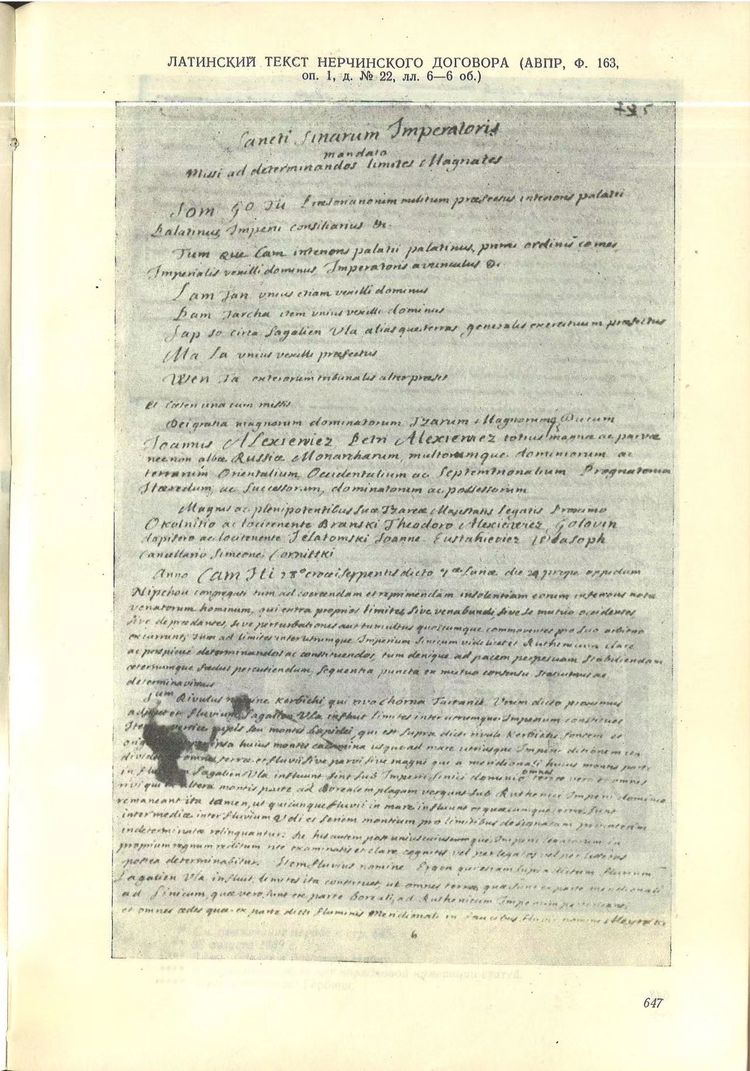 ЛАТИНСКИЙ ТЕКСТ НЕРЧИНСКОГО ДОГОВОРА (АВПР, Ф. 163,
оп. 1, д. № 22, лл. 6—6 об.)
Sancti Sinarum Imperatoris
mandato
Missi ad determinandos limites Magnates
Som Go Tu Praetorianorum militum praefectus interioris palatii
Palatinus, Imperii consiliarius &c.
Tum que Cam interioris palatii palatinus, primi ordinis comes
Imperialis vexilli dominus Imperatoris avunculus &c.
Lam Tan unius etiam vexilli dominus
Pam Tarcha item unius vexilli dominus
Sap so circa Sagalien Vla aliasque terras generalis exercituum praefectus
Ma La unius vexilli praefectus
Wen Ta exterorum tribunalis alter praeses
Et caeteri una cum missis
Dei gratia magnorum dominatorum Tzarum Magnorumque Ducum
Joannis Alexiewicz Petri Alexiewicz totius magnae ac parvae
nec non albae Russiae Monarcharum, multorumque dominiorum ac
terrarum Orientalium, Occidentalium ac Septemtrionalium Prognatorum
Haeredum ac Successorum, dominatorum ac possessorum
Magnis ac plenipotentibus Suae Tzareae Majestatis legatis Proximo
Okolnitio ac locitenente Branski Theodoro Alexiewicz Golovin
dapifero ac locitenente Jelatomski Joanne Eustahievicz Wlasoph
Cancellario Simeone Cornitski
Anno Cam Hi 28° crocei serpentis dicto 7ae Lunae die 24 prope oppidum
Nipchou congregati tum ad coercendam et reprimendam insolentiam eorum inferioris notae
venatorum hominum, qui extra proprios limites, sive venabundi, sive se mutuo occidentes,
sive depraedantes, sive perturbationes aut tumultus quoscumque commoventes pro suo arbitrio
excurrunt; tum ad limites inter utrumque Imperium Sinicum videlicet et Ruthenicum clare
ac perspicue determinandos ac constituendos, tum denique ad pacem perpetuam stabiliendam
aeternumque foedus percutiendum, sequentia puncta ex mutuo consensu statuimus ac
determinavimus
1um Rivulus nomine Kerbichi qui rivo chorna Tartaricè Vrum dicto proximus
fluvium Sagalien Vla influit limites inter utrumque Imperium constituet
seu montis lapidei, qui est supra dicti rivuli Kerbichi fontem et
ipsa huius montis cacumina usque ad mare utriusque Imperii ditionem ita
omnes terrae et fluvii sive parvi sive magni qui a meridionali huius montis parte
Sagalien Vla influunt sint sub Imperii Sinici dominio omnes terrae vero et omnes
rivi qui altera montis parte ad Borealem plagam vergunt sub Ruthenici Imperii dominio
remaneant ita tamen, ut quicunque fluvii in mare influunt et quaecunque terrae sunt
intermediae inter fluvium Vdi et seriem montium pro limitibus designatam
indeterminatae relinquantur.
proprium regnum reditum rite examinatis et clare cognitis vel per legatos vel per litteras
postea determinabitur. Item fluvius nomine Ergon qui etiam supra dictum fluvium
Sagalien Vla influit, limites ita constituet, ut omnes terrae quae sunt ex parte meridionali
ad Sinicum, quae vero sunt ex parte boreali, ad Ruthenicum Imperium pertineant;
et omnes aedes quae ex parte dicti fluminis Meridionali in faucibus fluvii nomine
6
647